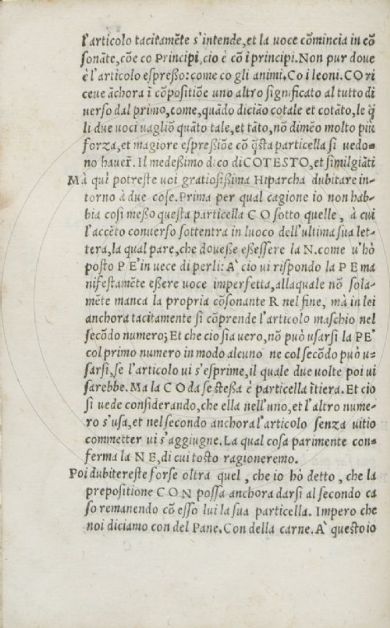 l'articolo tacitamẽte s'intende, et la uoce cõmincia in cõ
sonãte, cõe co Principi, cio è cõ i principi. Non pur doue
è l'articolo espreßo: come co gli animi. Co i leoni. CO ri
ceue ãchora ĩ cõpositiõe uno altro significato al tutto di
uerso dal primo, come, quãdo dicião cotale et cotãto, le q̃
li due uoci uagliõ quãto tale, et tãto, nõ dimẽo molto piu
forza, et magiore espreßiõe cõ q̃sta particella si uedo-
no hauer. Il medeßimo dico di COTESTO, et similgiãti
Mà quì potreste uoi gratiosißima Hiparcha dubitare in-
torno à due cose. Prima per qual cagione io non hab-
bia cosi meßo questa particella CO sotto quelle, à cui
l'accẽto conuerso sottentra in luoco dell'ultima sua let-
tera, la qual pare, che doueße eßessere la N. come u'hò
posto PE' in uece di per li: A' cio ui rispondo la PE ma
nifestamẽte eßere uoce imperfetta, alla quale nõ sola-
mẽte manca la propria cõsonante R nel fine, mà in lei
anchora tacitamente si cõprende l'articolo maschio nel
secõdo numero; Et che cio sia uero, nõ può usarsi la PE'
col primo numero in modo alcuno ne col secõdo può u-
sarsi, se l'articolo ui s'esprime, il quale due uolte poi ui
sarebbe. Ma la CO da se steßa è particella ĩtiera. Et cio
si uede considerando, che ella nell'uno, et l'altro nume-
ro s'usa, et nel secondo anchora l'articolo senza uitio
commetter ui s'aggiugne. La qual cosa parimente con-
ferma la NE, di cui tosto ragioneremo.
Poi dubitereste forse oltra quel, che io hò detto, che la
prepositione CON possa anchora darsi al secondo ca
so remanendo cõ esso lui la sua particella. Impero che
noi diciamo con del Pane. Con della carne. A' questo io